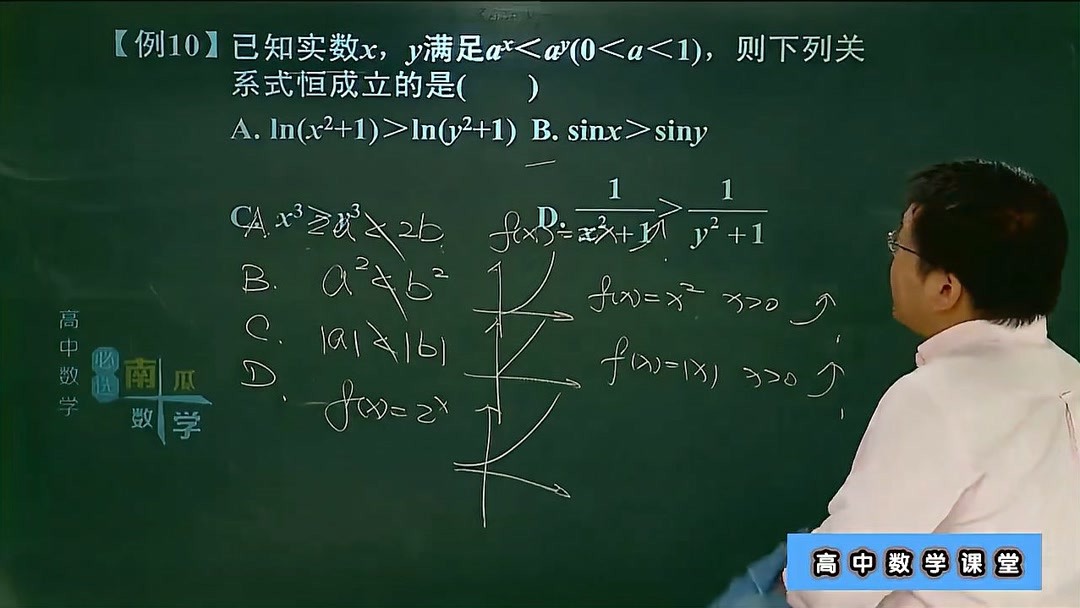 【例10】已知实数x，y满足aˣ＜aʸ(0＜a＜1)，则下列关
系式恒成立的是(　　)
A. ln(x²+1)＞ln(y²+1) B. sinx＞siny
C. x³＞y³ D. 1/(x²+1)＞1/(y²+1)
A. 2a < 2b f(x)=2x ↑
B. a² < b² f(x)=x² x>0 ↑
C. |a| < |b| f(x)=|x| x>0 ↑
D.
f(x)=2ˣ
高中数学
必选
南瓜
数学
高中数学课堂